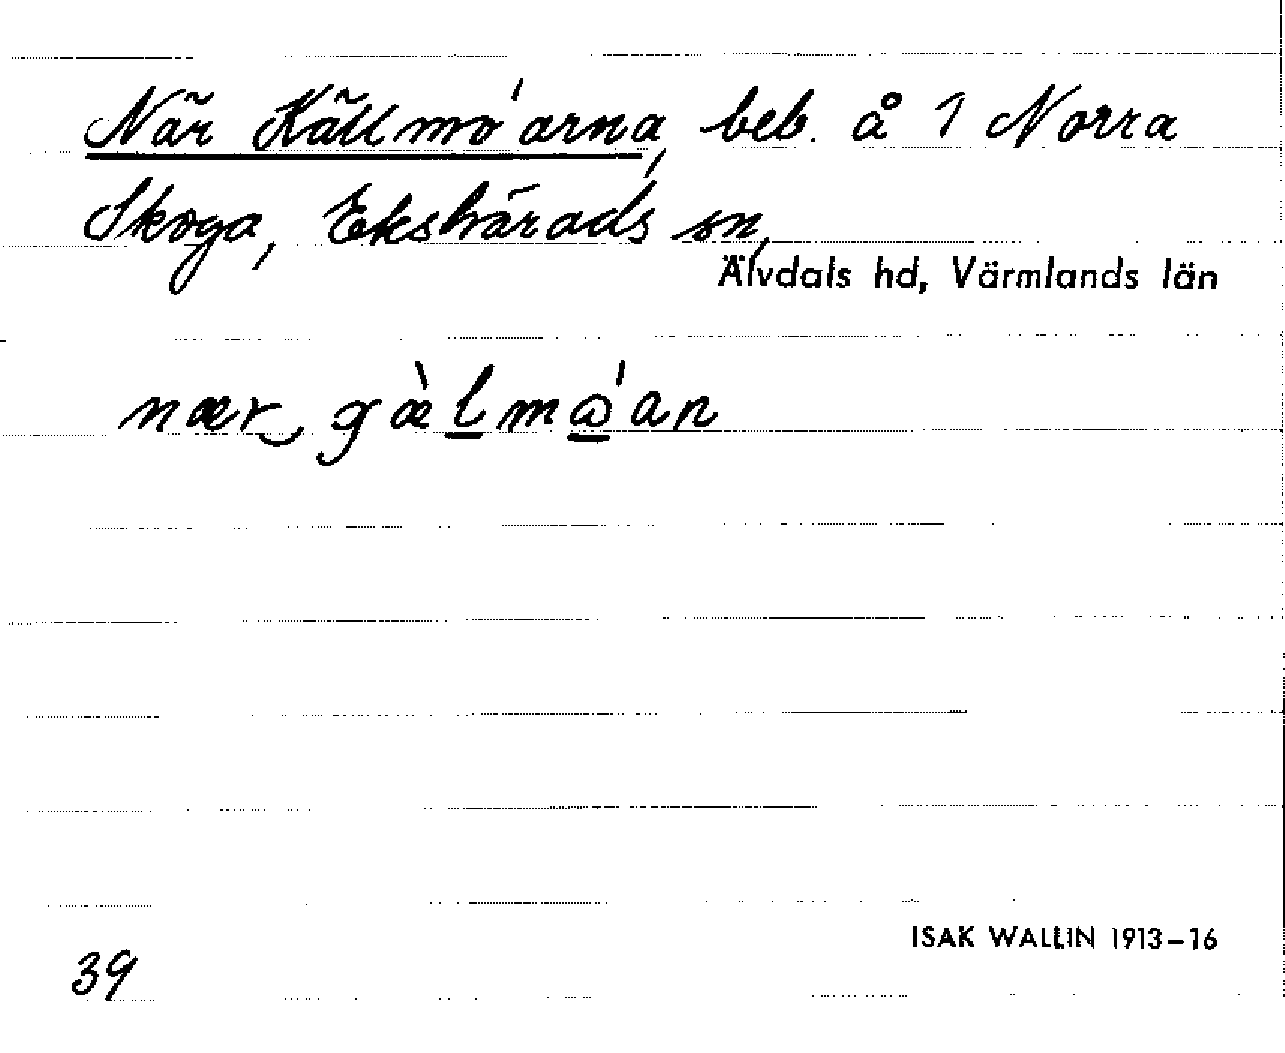 När Källmo'arna, beb. å 1 Norra
Skoga, Ekshärads sn,
Älvdals hd, Värmlands län
nær‿gæ̀l̲mώ̲an
39
ISAK WALLIN 1913–16